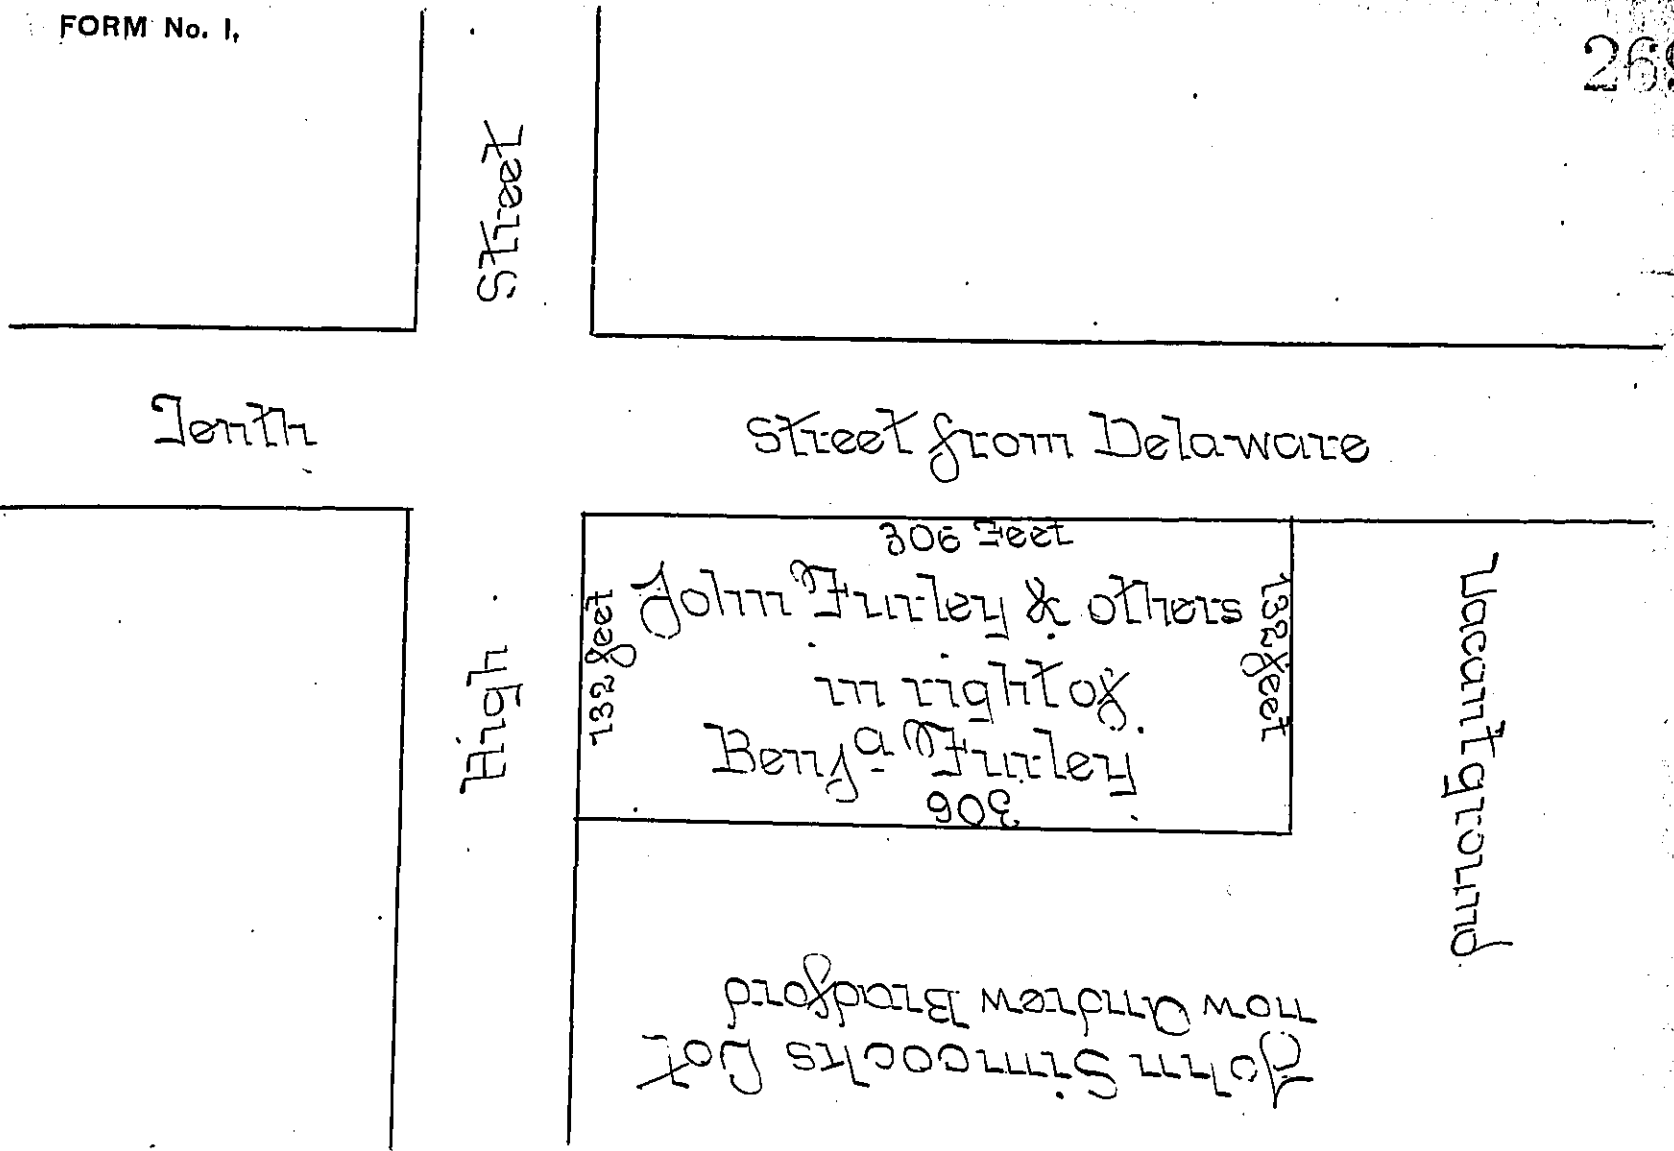 FORM No. 1.
Street
Tenth
Street from Delaware
306 Feet
132 feet
John Furley & others
132 feet
in right of
Benja Furley
306
High
Vacant ground
John Simcocks Lot
now Andrew Bradford